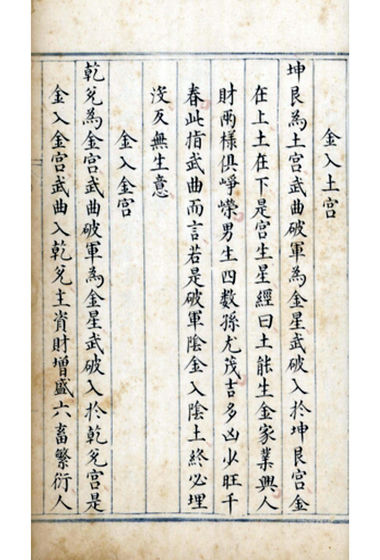 金入土宮
坤艮為土宮武曲破軍為金星武破入於坤艮宮金
在上土在下是宮生星經曰土能生金家業興人
財兩樣俱崢嶸男生四數孫尤茂吉多凶少旺千
春此指武曲而言若是破軍陰金入陰土終必埋
沒反無生意
金入金宮
乾兌為金宮武曲破軍為金星武破入於乾兌宮是
金入金宮武曲入乾兌主資財增盛六畜繁衍人